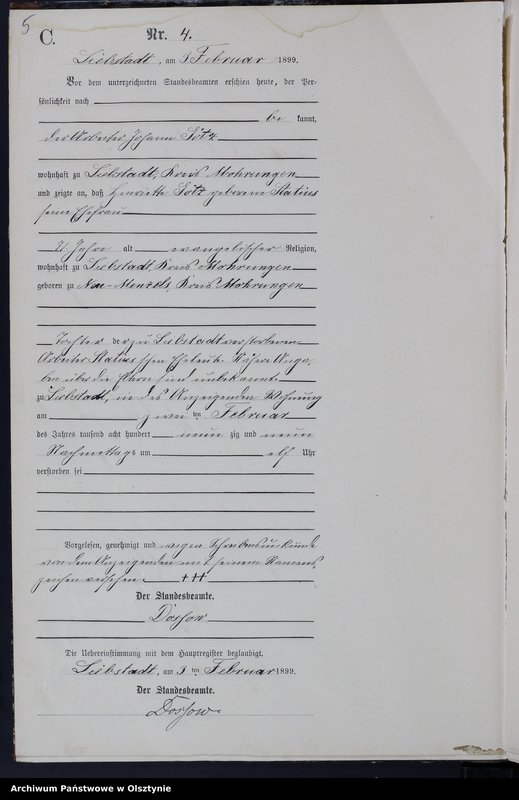 5
C.
Nr. 4.
Liebstadt, am 3 Februar 1899.
Vor dem unterzeichneten Standesbeamten erschien heute, der Per-
sönlichkeit nach
be kannt,
der Arbeiter Johann Götz
wohnhaft zu Liebstadt, Kreis Mohrungen
und zeigte an, daß Henriette Götz geborene Statius
seine Ehefrau
Jahre alt evangelischer Religion,
wohnhaft zu Liebstadt, Kreis Mohrungen
geboren zu Neu-Menzels, Kreis Mohrungen
Tochter der zu Liebstadt verstorbenen
Arbeiter Statius'schen Eheleute. Nähere Anga-
ben über die Eltern sind unbekannt.
zu Liebstadt, in des Anzeigenden Wohnung
am zwei ten Februar
des Jahres tausend acht hundert neun zig und neun
Nachmittags um elf Uhr
verstorben sei
Vorgelesen, genehmigt und wegen Schreibensunkunde
von dem Anzeigenden mit seinem Namens-
zeichen versehen. +++
Der Standesbeamte.
Dossow
Die Uebereinstimmung mit dem Hauptregister beglaubigt.
Liebstadt, am 3 ten Februar 1899.
Der Standesbeamte.
Dossow
Archiwum Państwowe w Olsztynie